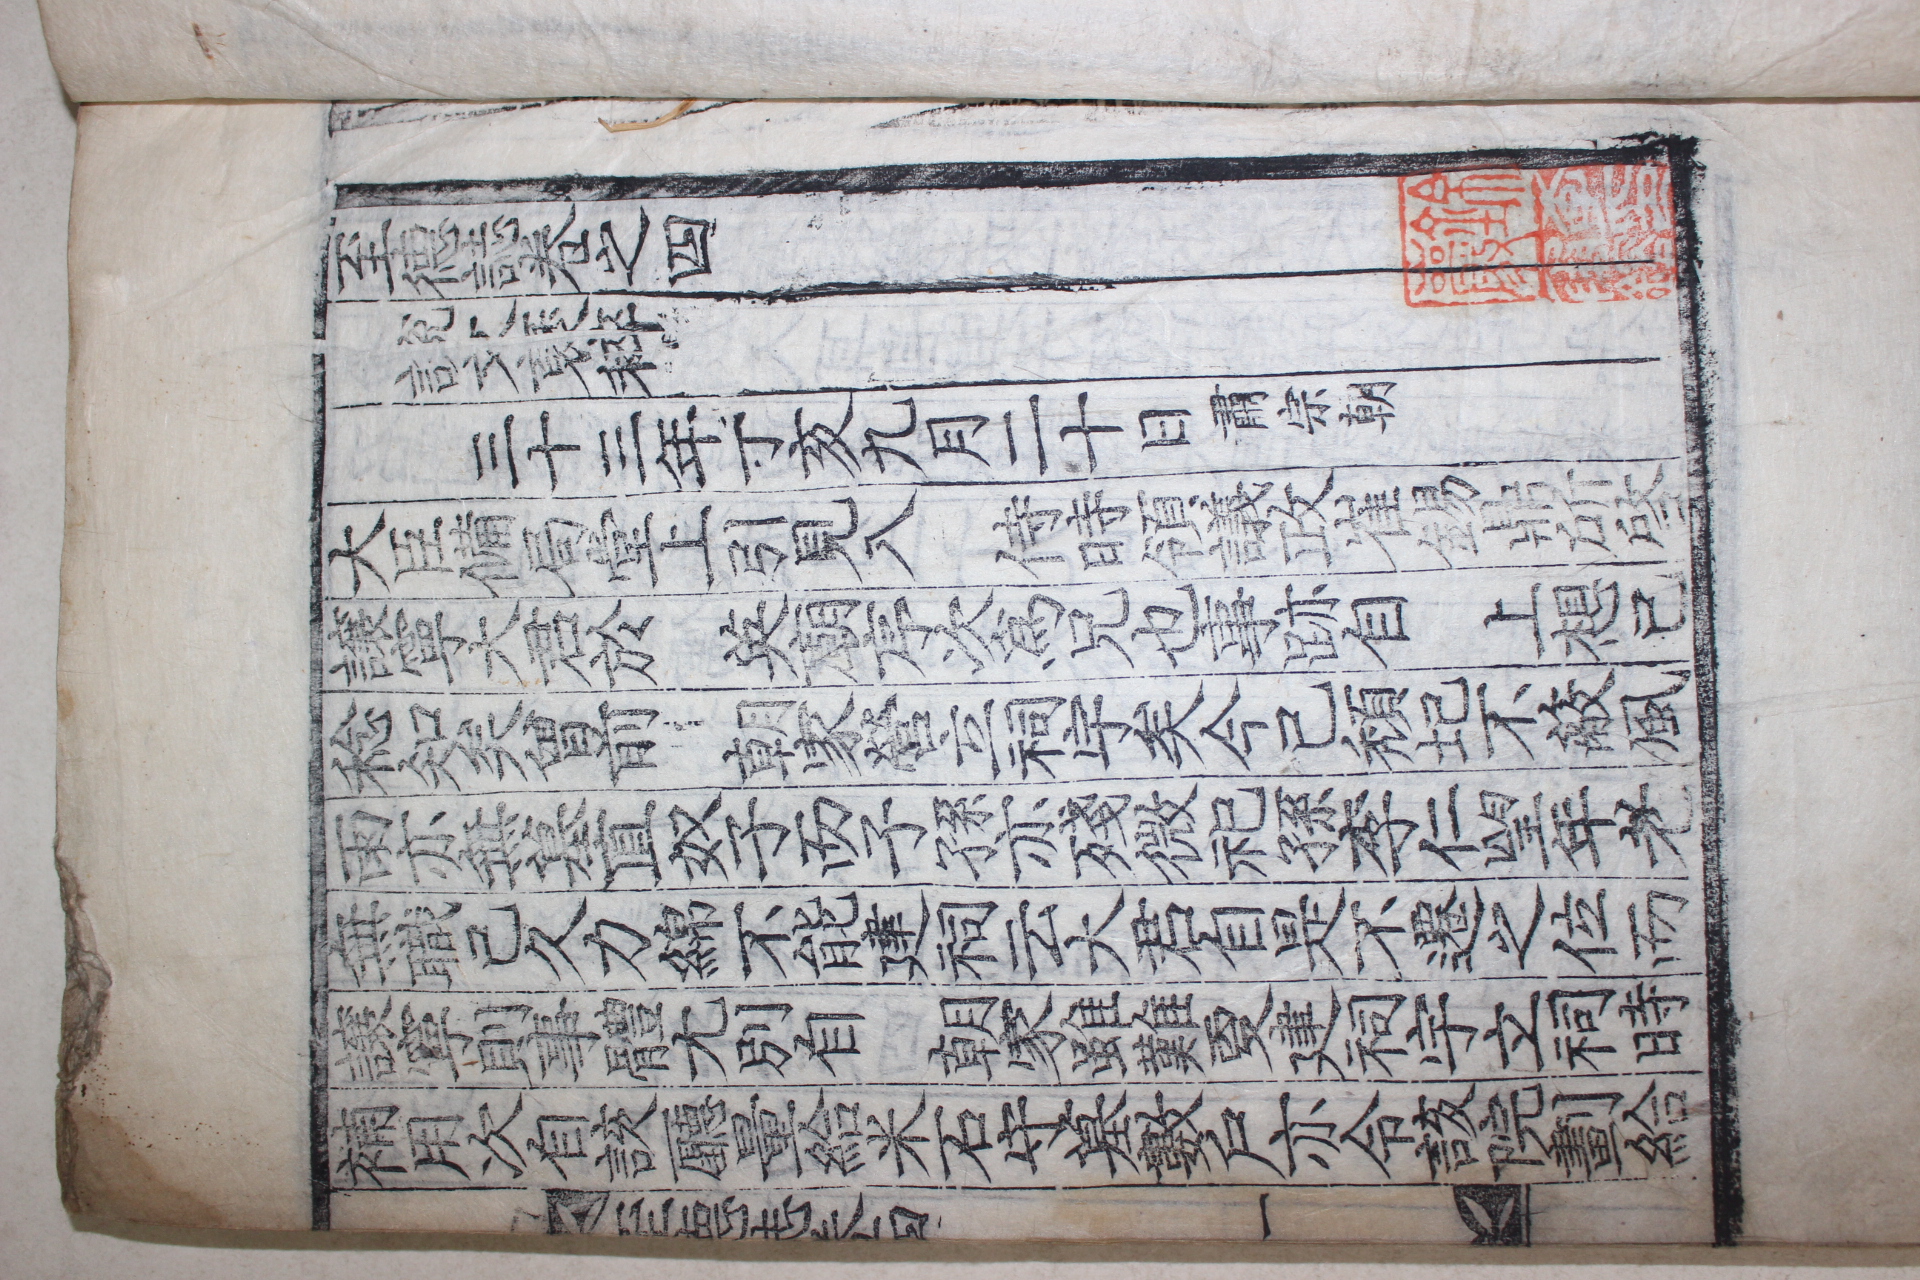 至德誌卷之四
說文裒稡
三十三年丁亥九月二十日肅宗朝
大臣備局堂上引見入 侍時領議政崔錫鼎所啓
讓寧大君於 英廟序次爲兄也事跡自 上想已
稔知矣曾前 朝家營立祠宇矣今已頹圮不蔽風
雨亦無墓直奴子而子孫亦殘微祀孫李仁望年老
無職已久力綿不能建祠云大君自是不遷之位而
讓寧則事體尢別自 朝家雖難更建祠宇立祠時
補用次自該廳量給米石守墓數戶亦令該院劃給
至德誌卷四
一